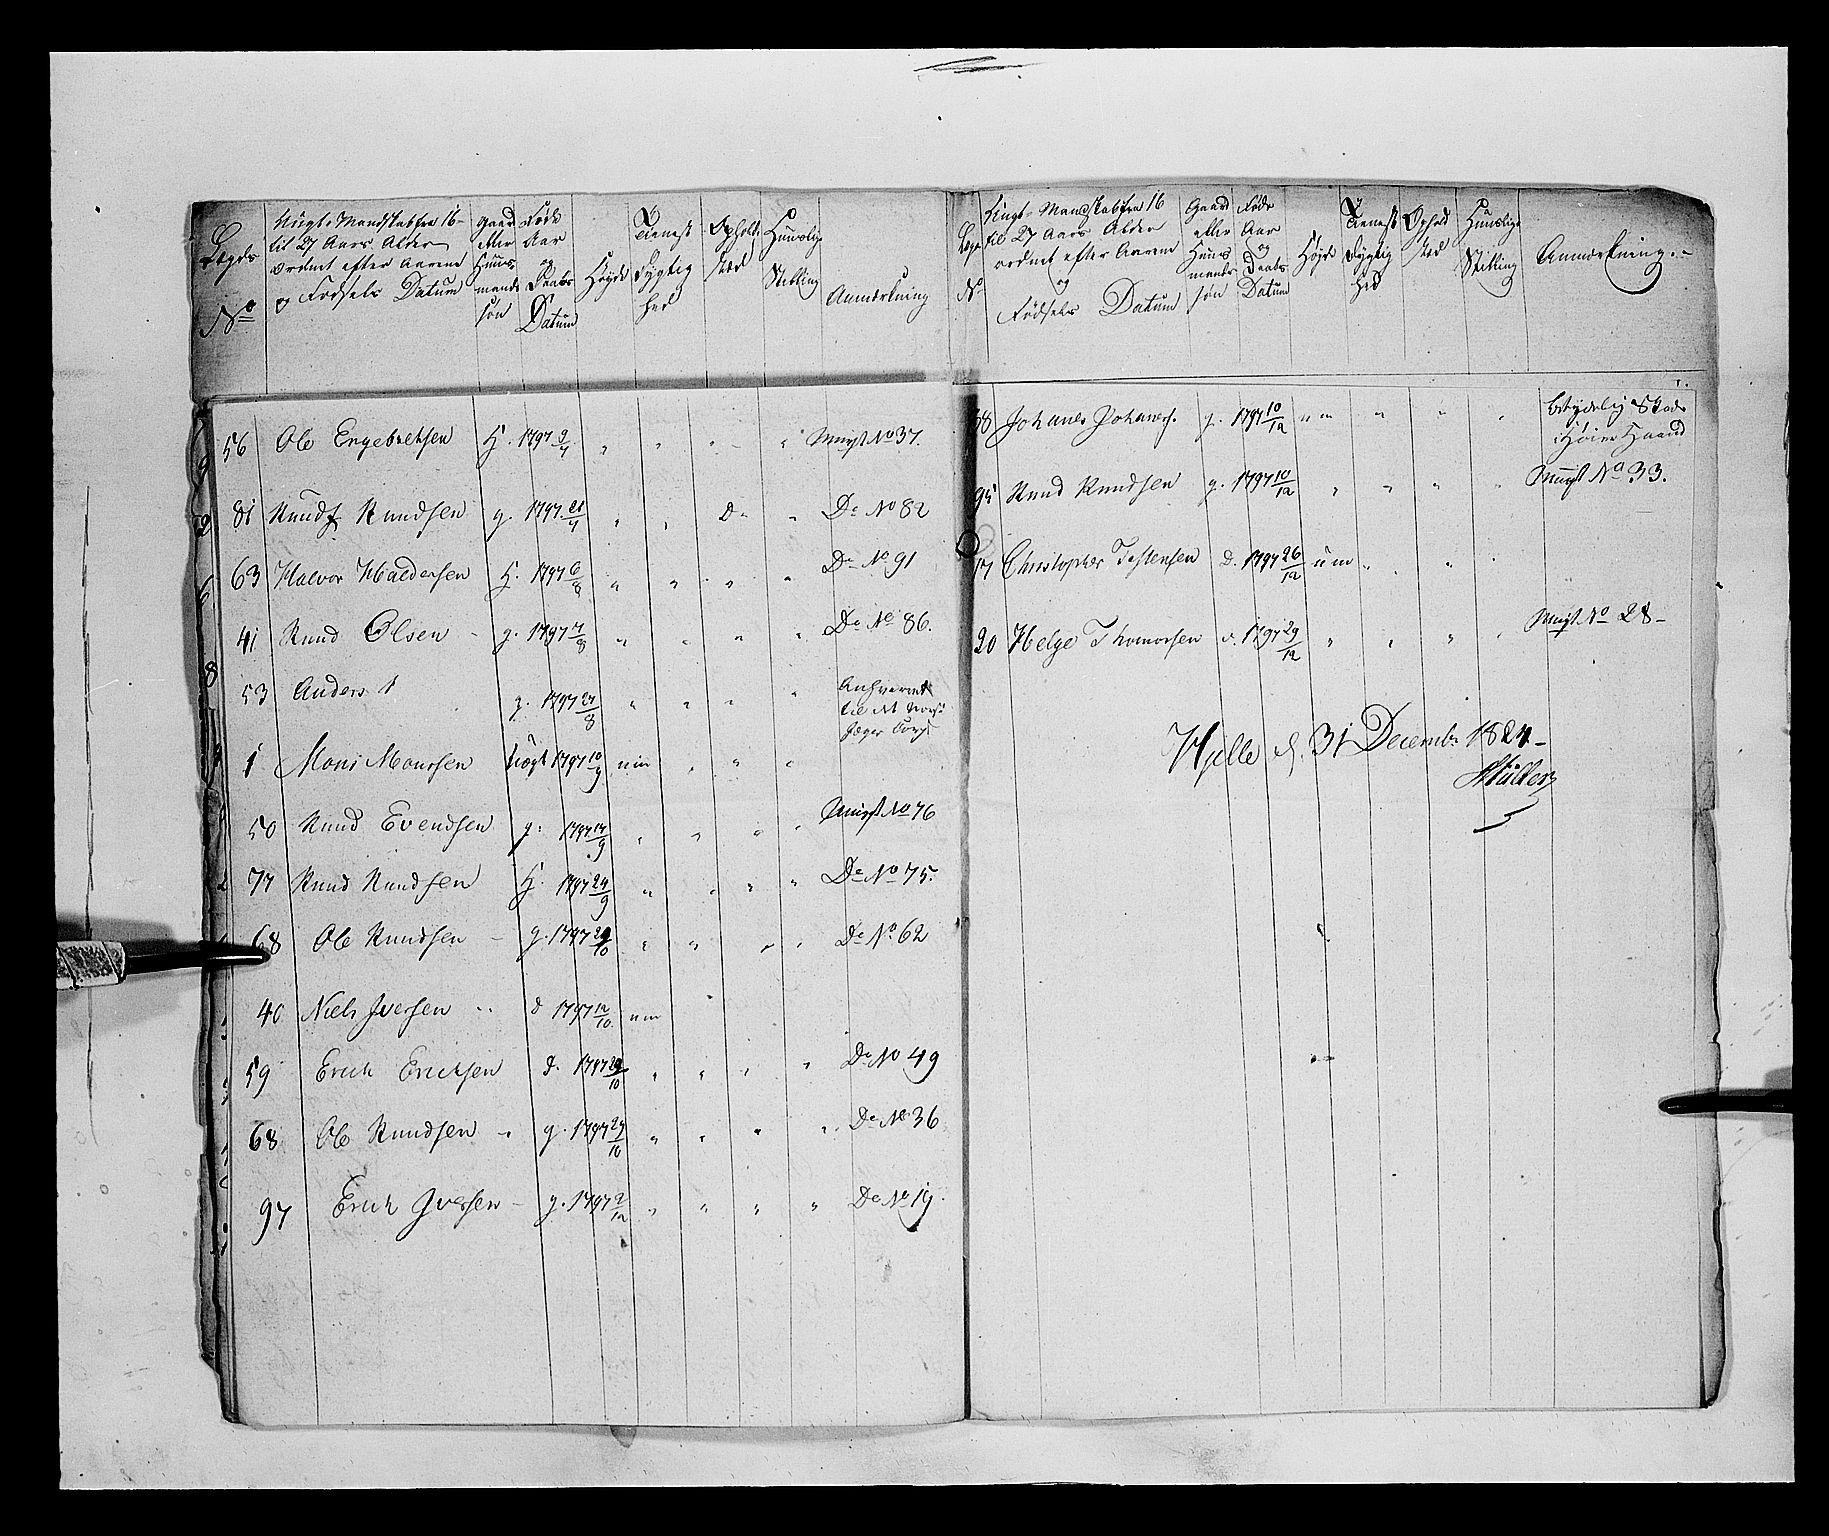 Lægds No
Ungt Mandskab fra 16 til 27 Aars Alder ordnet efter Aarene og Fødsels Datum
Gaard eller Huus mands søn
Føde Aar og Daabs Datum
Høyde
Tienest Dygtig hed
Ophold sted
Huuslig Stilling
Anmærkning
56 Ole Engebretsen H. 1797 9/7 " " " " Mugst No 37.
81 Knud Knudsen g. 1797 21/7 " " D " De No 82
63 Halvor Haldorsen H. 1797 6/8 " " " " De No 91
41 Knud Olsen - g. 1797 7/8 " " " " De No 86.
53 Anders g. 1797 27/8 " " " "
til
Jæger Corps
1 Mons Monssen 1797 10/9 um " " "
50 Knud Evendsen g. 1797 14/9 " " " " Mugst No 76
77 Knud Knudsen H. 1797 24/9 " " " " De No 75.
68 Ole Knudsen - g. 1797 /10 " " " " De No 62
40 Niels Iversen d 1797 12/10 um
59 Erich Ericksen d. 1797 /10 " " " " De No 49
68 Ole Knudsen " g. 1797 27/10 " " " " De No 36
97 Erich Iversen - g. 1797 2/12 " " " " De No 19.
Lægs No
Ungt Mandskab fra 16 til 27 Aars Alder ordnet efter Aarene og Fødsels Datum
Gaard eller Huus mands søn
Føde Aar og Daabs Datum
Høyde
Tienest Dygtig hed
Ophold sted
Huuslig Stilling
Anmærkning.-
38 Johanes Johaness. g. 1797 10/12 um " " " betydelig Skade
i Høire Haand
95 Knud Knudsen g. 1797 10/12 " " " " Mugst No 33.
17 Christopher Tostensen d. 1797 26/12 um " " "
20 Helge Thomassen d. 1797 29/12 " " " " Mugst No 28-
Hjelle d. 31 Decembr 1824-
Müller